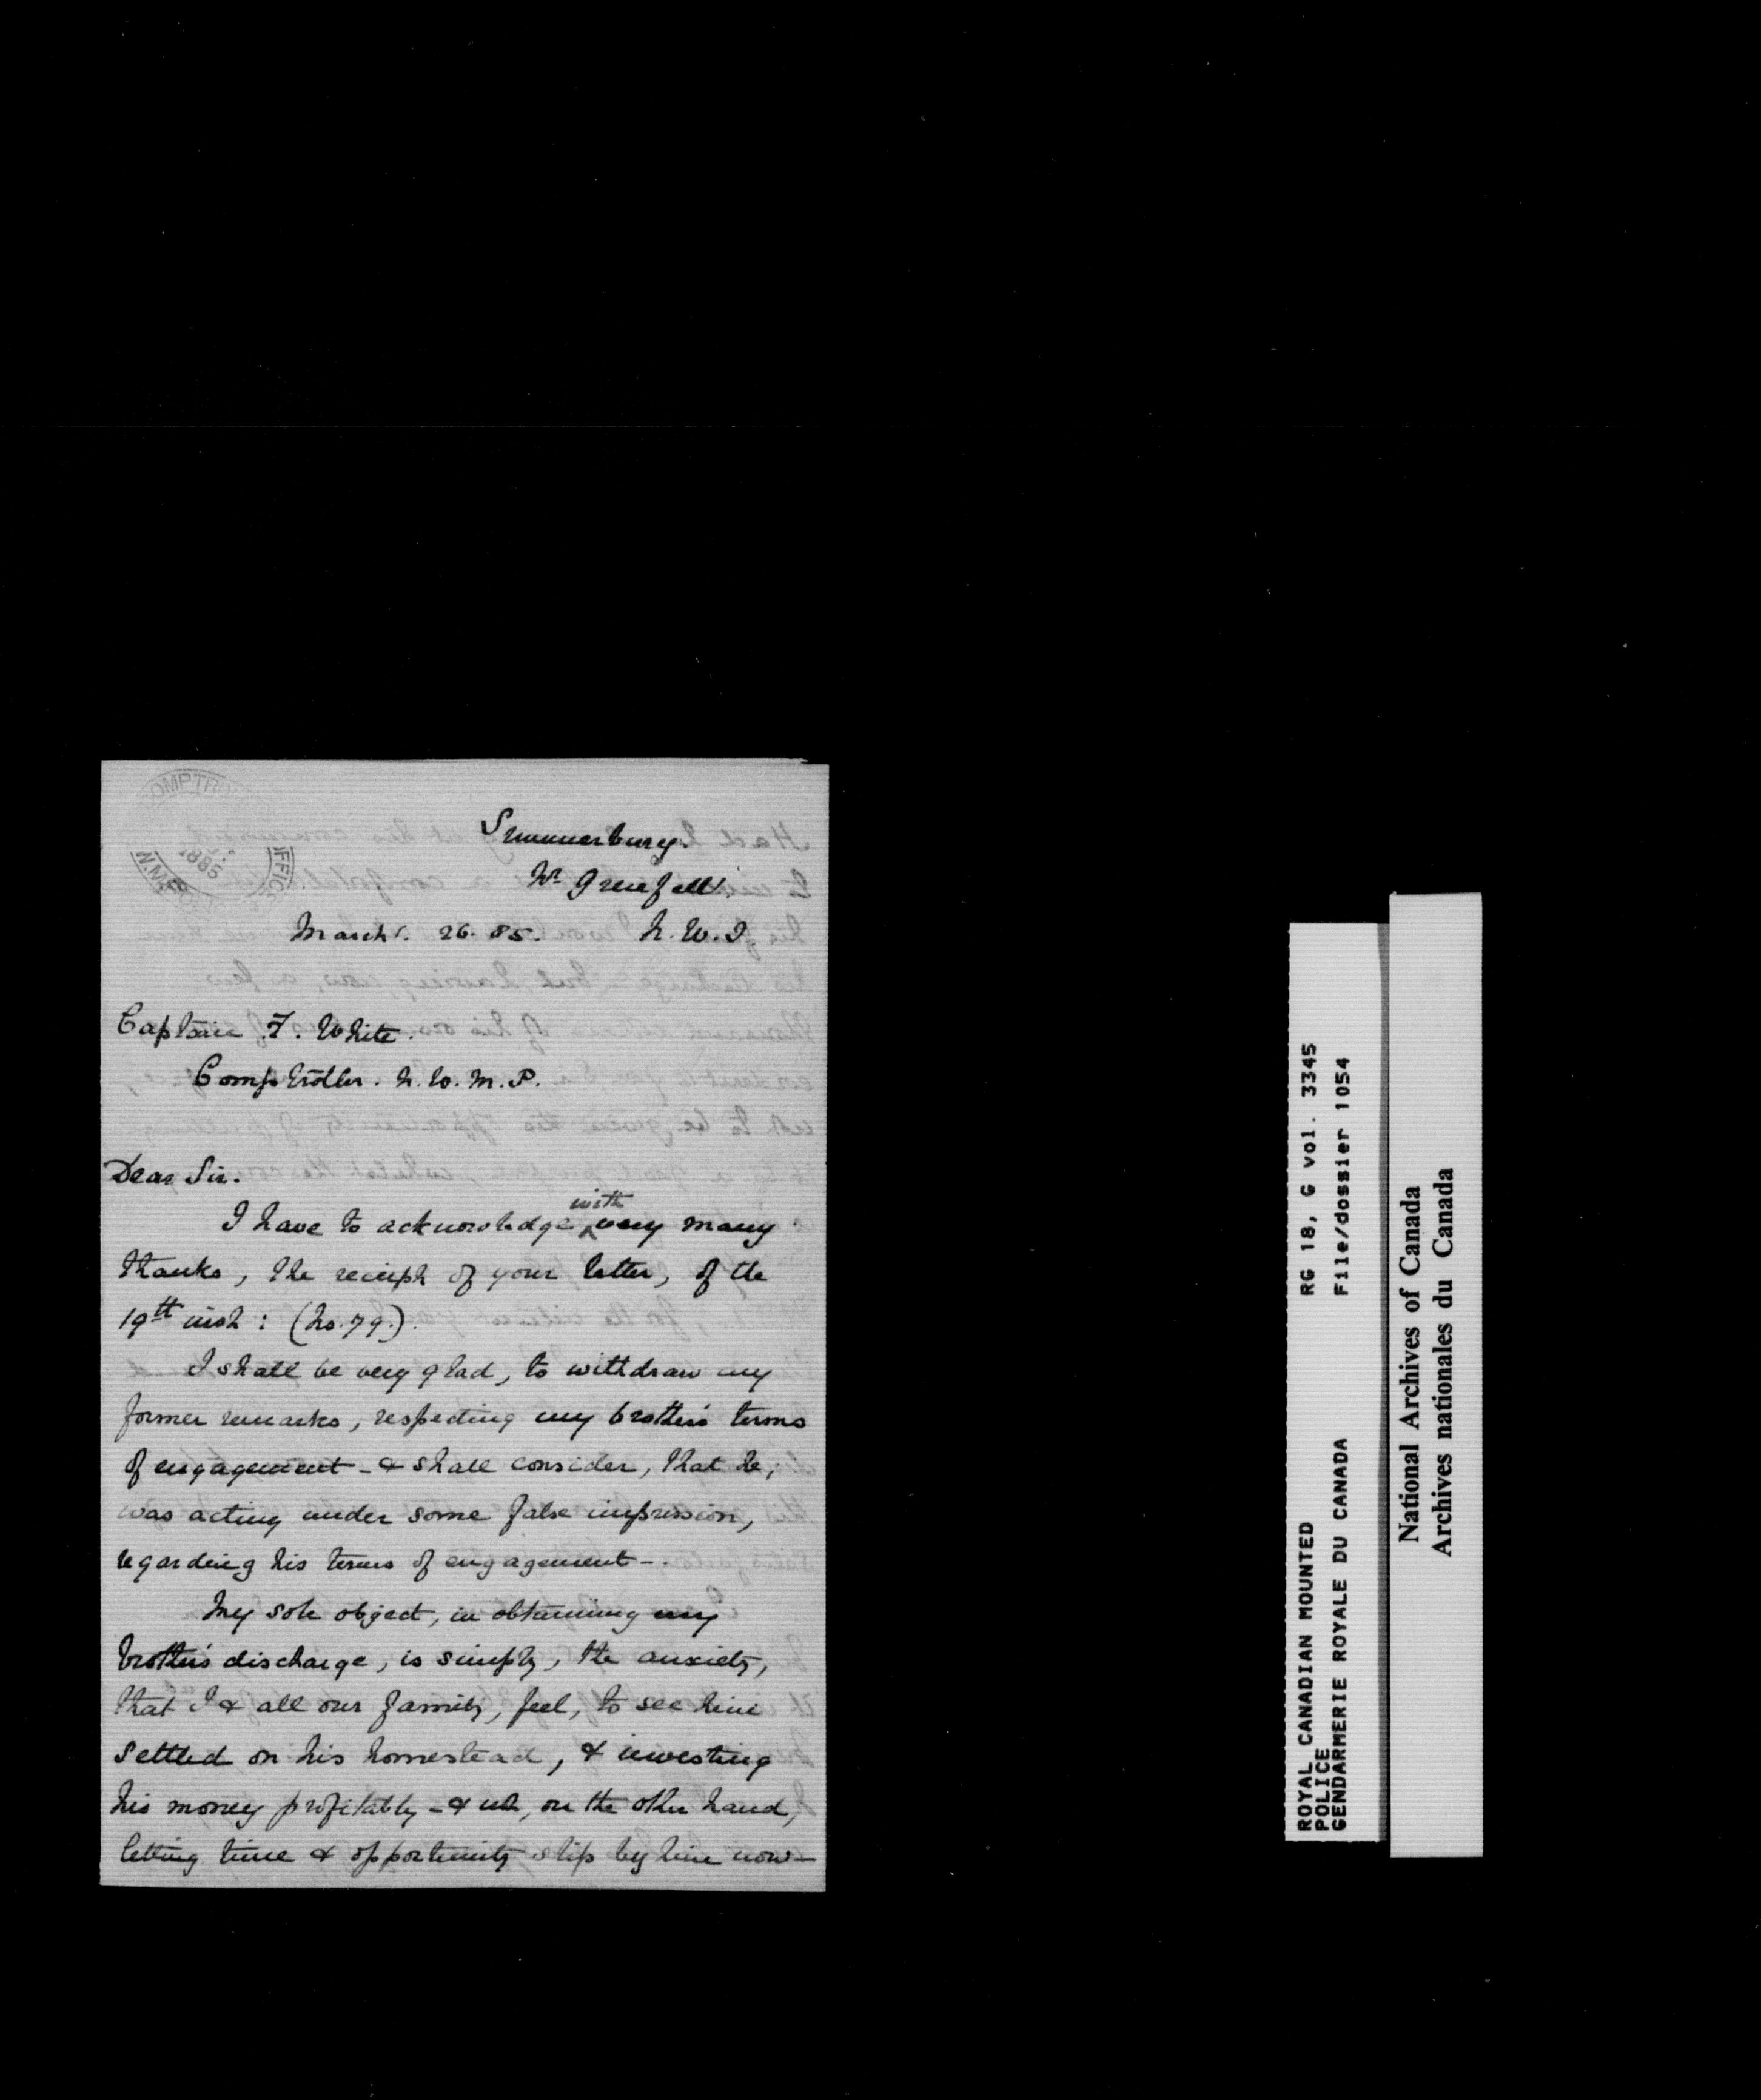 Summerbury.
Nr. Grenfell.
March. 26. 85. N. W. T.
Captain F. White.
Comptroller. N. W. M. P.
Dear Sir.
I have to acknowledge with very many
thanks, the receipt of your letter, of the
19th inst: (No. 79.).
I shall be very glad, to withdraw my
former remarks, respecting my brother's terms
of engagement - & shall consider, that he,
was acting under some false impression,
regarding his terms of engagement -.
My sole object, in obtaining my
brother's discharge, is simply, the anxiety,
that I & all our family, feel, to see him
settled on his homestead, & investing
his money profitably - & not, on the other hand,
letting time & opportunity slip by him now -
COMPTRO
OFFICE
1885
N.W.M.P.
ROYAL CANADIAN MOUNTED RG 18, G vol. 3345
POLICE
GENDARMERIE ROYALE DU CANADA File/dossier 1054
National Archives of Canada
Archives nationales du Canada